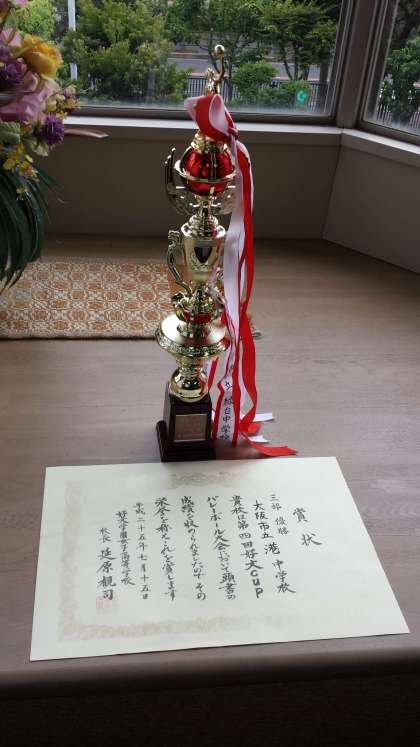 賞状
三部 優勝
大阪市立 港 中学校
貴校は第四回好文Cup
バレーボール大会において頭書の
成績を収められましたので その
栄誉を称え これを賞します
平成二十五年七月十五日
好文学園女子高等学校
校長 延原観司